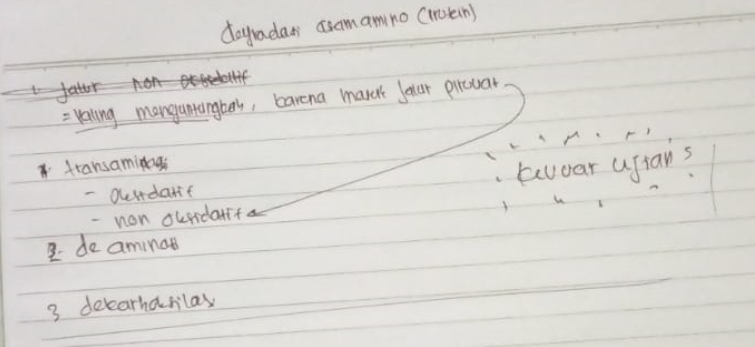 degradasi asam amino (Protein)
1. Jalur non oksidatif
= Paling menguntungkan, karena masuk jalur piruvat
1. transaminasi
- oksidatif
- non oksidatif
2. de aminasi
keluar ujian's
3 dekarboksilasi